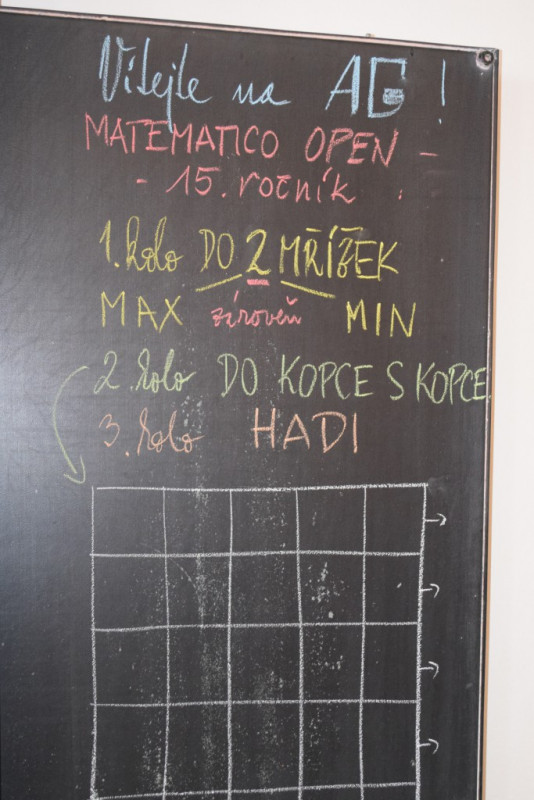 Vítejte na AG!
MATEMATICO OPEN -
- 15. ročník
1. kolo DO 2 MŘÍŽEK
MAX zároveň MIN
2. kolo DO KOPCE S KOPCE
3. kolo HADI